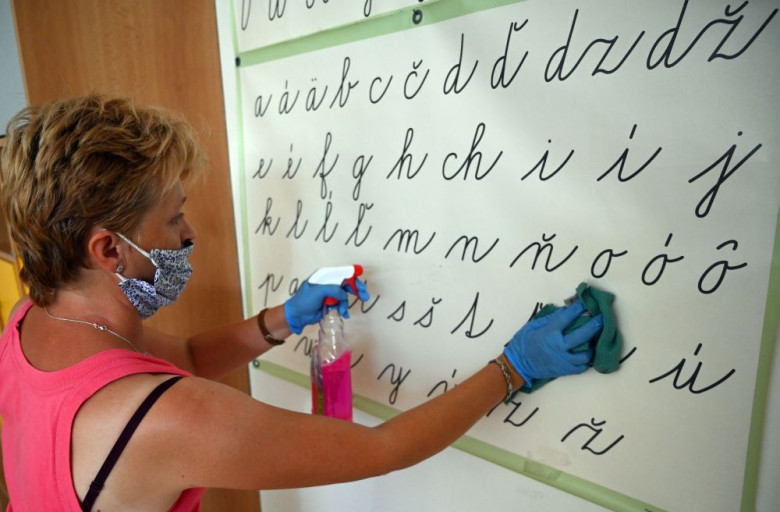 a á ä b c č d ď dz dž
e é f g h ch i í j
k l ĺ ľ m n ň o ó ô
p s š ú
y z ž